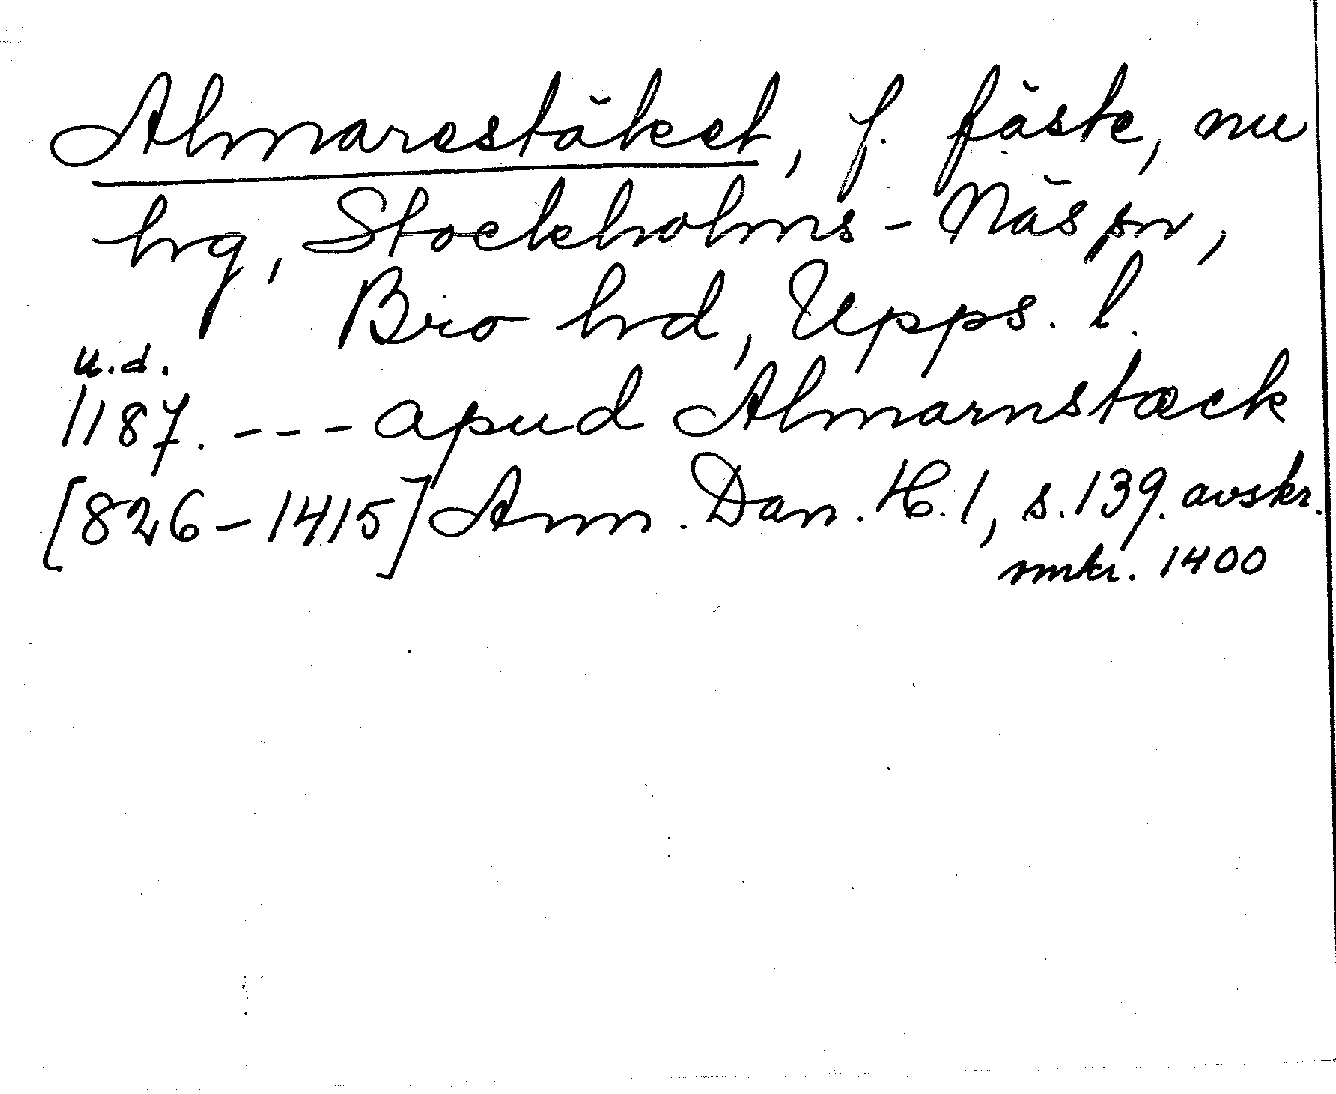 Almarestäket, f. fäste, nu
hrg, Stockholms-Näs sn,
Bro hrd, Upps. l.
u.d.
1187. --- apud Almarnstæck
[826-1415] Ann. Dan. H. 1, s. 139. avskr.
omkr. 1400